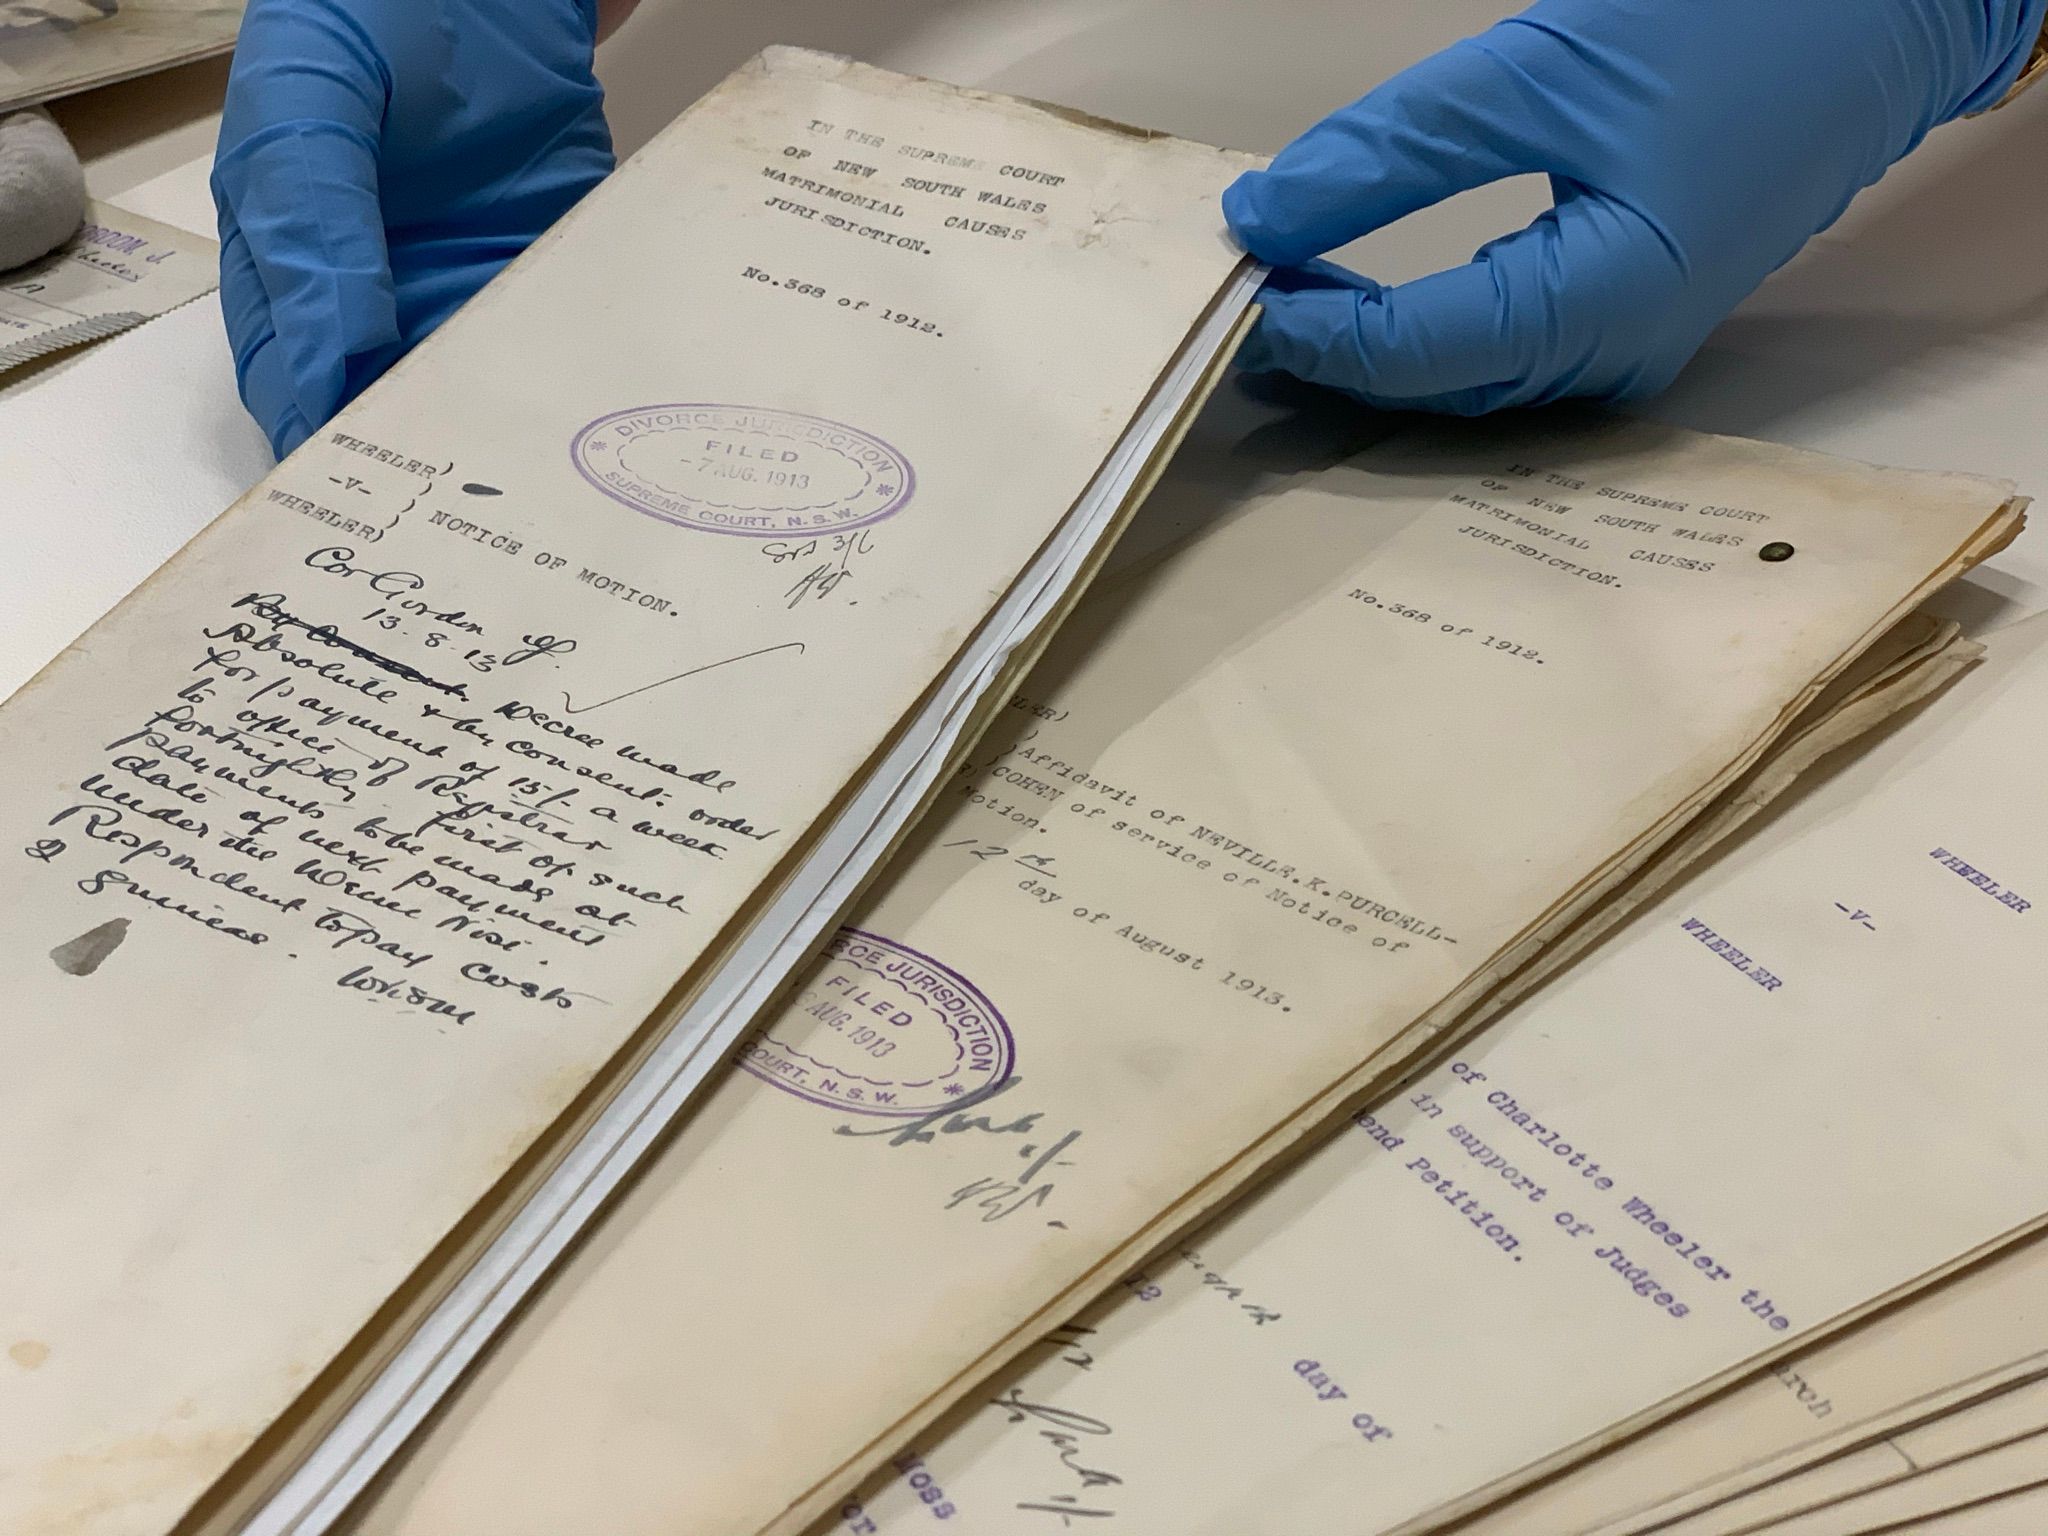 IN THE SUPREME COURT
OF NEW SOUTH WALES
MATRIMONIAL CAUSES
JURISDICTION.
No.368 of 1912.
DIVORCE JURISDICTION
FILED
-7 AUG. 1913
SUPREME COURT, N.S.W.
WHEELER)
-v- )
WHEELER)
NOTICE OF MOTION.
Cor Gordon J.
13.8.13
By Consent. Decree made
Absolute & by consent: order
for payment of 15/- a week
to office of Registrar
fortnightly first of such
payments to be made at
date of next payment
under the Decree Nisi.
Respondent to pay costs
2 guineas.
IN THE SUPREME COURT
OF NEW SOUTH WALES
MATRIMONIAL CAUSES
JURISDICTION.
No.368 of 1912.
LER)
)
R)
Affidavit of NEVILLE.K.PURCELL-
COHEN of service of Notice of
Motion.
12th
day of August 1913.
RCE JURISDICTION
FILED
AUG. 1913
COURT, N.S.W.
WHEELER
-v-
WHEELER
of Charlotte Wheeler the
in support of Judges
end Petition.
12
day of
arch
Moss
or
GORDON, J.